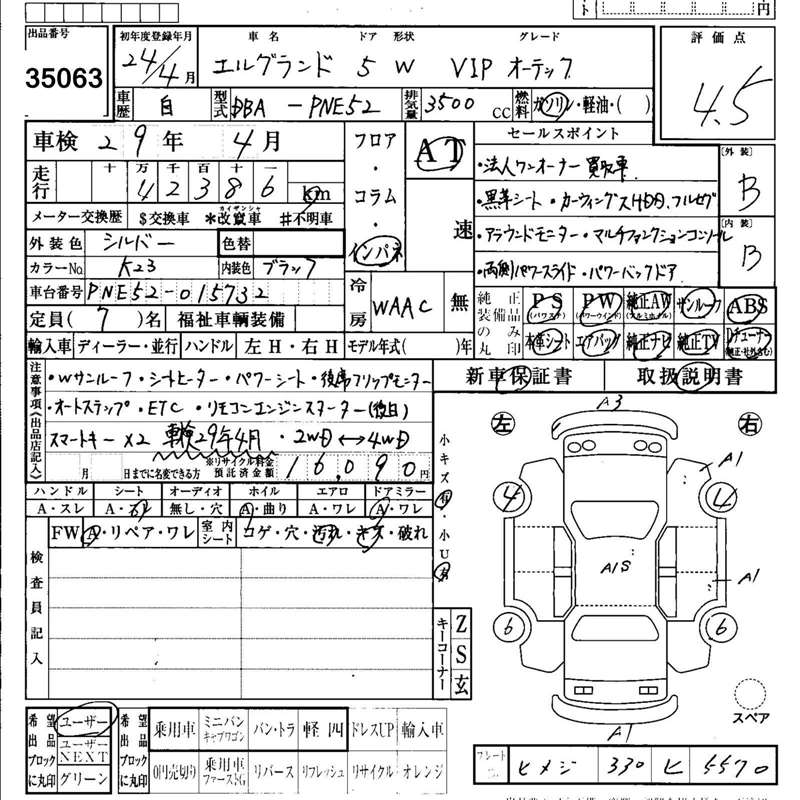 ト 円
出品番号 初年度登録年月 車名 ドア 形状 グレード 評価点
35063 24/4月 エルグランド 5 W VIP オーテック 4.5
車歴 自 型式 DBA-PNE52 排気量 3500CC 燃料 ガソリン・軽油・( )
車検 29年 4月 フロア・コラム・インパネ AT 速 セールスポイント
・法人ワンオーナー 買取車 [外装] B
・黒革シート・カーウイングスHDD、フルセグ
・アラウンドモニター・マルチファンクションコンソール [内装] B
・両側パワースライド・パワーバックドア
走行 十 万 千 百 十 一
4 2 3 8 6 km
メーター交換歴 $交換車 *改竄車 #不明車
カイザンシャ
外装色 シルバー 色替
カラーNo. K23 内装色 ブラック
車台番号 PNE52-015732
冷房 WAAC 無
純正装備品のみ丸印
PS (パワステ) PW (パワーウインド) 純正AW (アルミホイル) サンルーフ ABS
本革シート エアバッグ 純正ナビ 純正TV Dチューナー (純正・社外含む)
定員( 7 )名 福祉車輌装備
輸入車 ディーラー・並行 ハンドル 左H・右H モデル年式( )年
新車保証書 取扱説明書
注意事項(出品店記入)
・Wサンルーフ・シートヒーター・パワーシート・後席フリップモニター
・オートステップ・ETC・リモコンエンジンスターター(後日)
スマートキー×2 車検29年4月・2WD↔4WD
月 日までに名変できる方 ※リサイクル料金預託済金額 16,090円
ハンドル シート オーディオ ホイル エアロ ドアミラー
A・スレ A・スレ 無し・穴 A・曲り A・ワレ A・ワレ
FW A・リペア・ワレ 室内シート コゲ・穴・汚れ・キズ・破れ
検査員記入
小キズ有・小U有
キーコーナー Z S 玄
左 右
A3
A1
4 4
A1S
A1
6 6
A1
スペア
希望出品ブロックに丸印 ユーザー ユーザーNEXT グリーン
希望出品ブロックに丸印 乗用車 ミニバンキャブワゴン バン・トラ 軽四 ドレスUP 輸入車
0円売切り 乗用車ファーストSG リバース リフレッシュ リサイクル オレンジ
プレートNo. ヒメジ 330 ヒ 5570